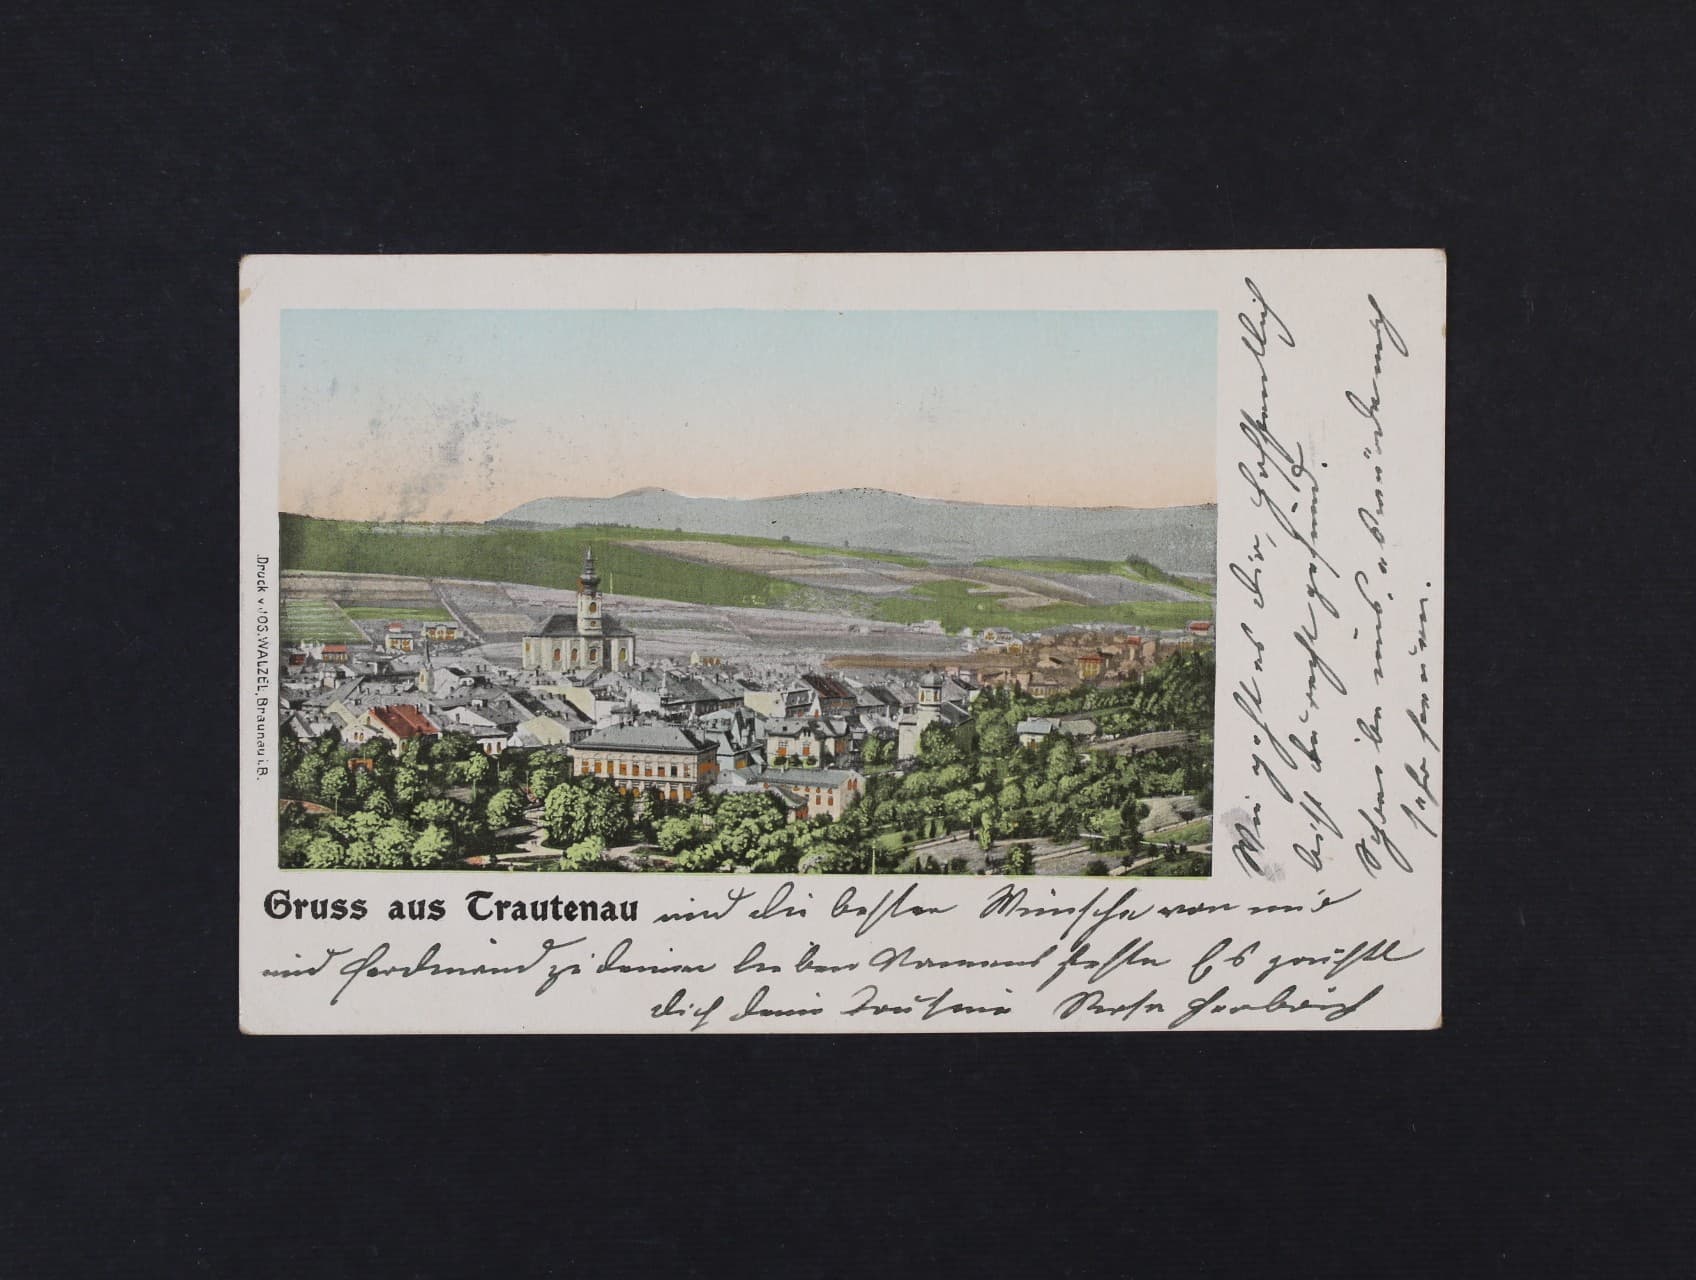 Druck v. JOS. WALZEL, Braunau i. B.
Gruss aus Trautenau und die besten Wünsche von mir
und Ferdinand zu deinem lieben Namensfeste Es grüßt
dich deine Cousine Rosa
Wie geht es dir, hoffentlich
bist du recht gesund.
Schreibe würde mich
sehr freuen.